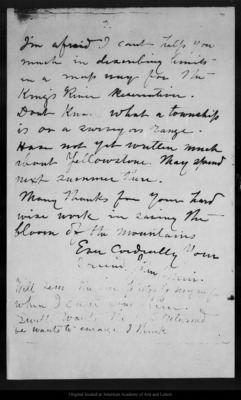 2.
I'm afraid I cant help you
much in describing limits
in a map way for the
Kings River Reservation.
Dont Know what a township
is or a survey or range.
Have not yet written much
about Yellowstone. May spend
next summer there.
Many thanks for your hard
wise work in saving the
bloom of the mountains
Ever Cordially Your
friend
Will
when I can
wants the
he wants to enlarge I think
Original located at American Academy of Arts and Letters